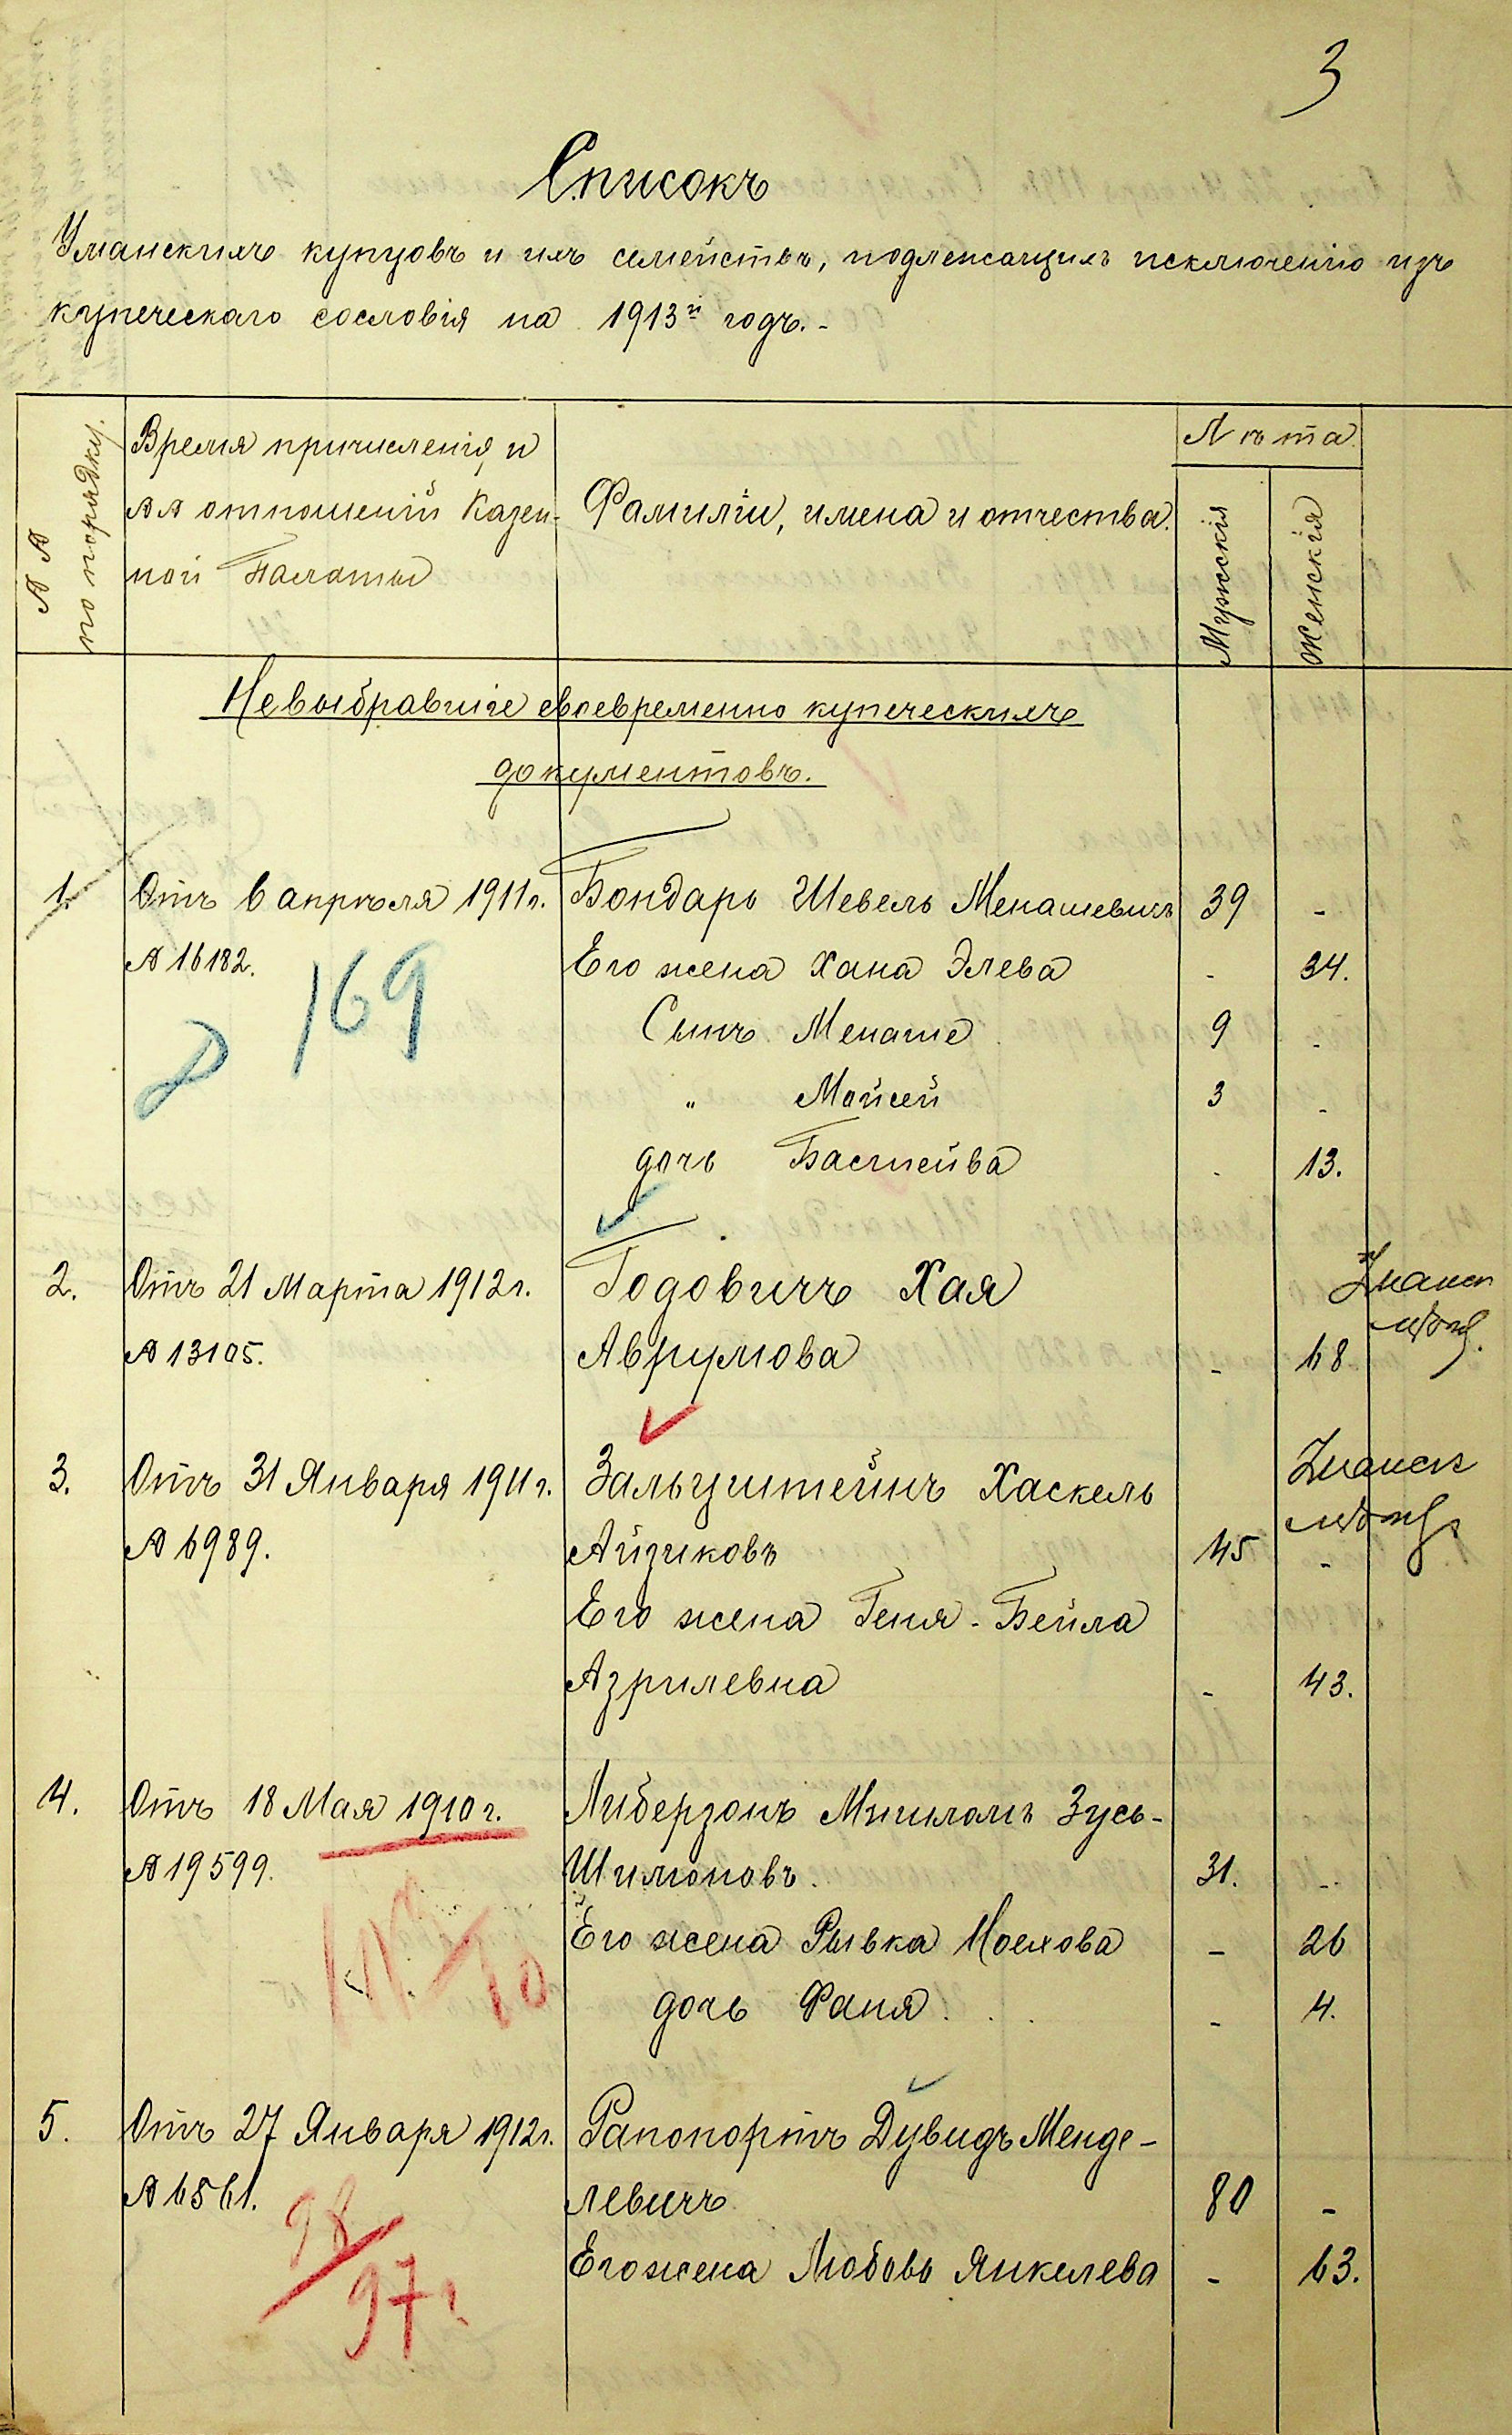 3
Списокъ
Уманскихъ купцовъ и ихъ семействъ, подлежащихъ исключенію изъ
купеческаго сословія на 1913й годъ.-
№ №
по порядку.
Время причисленія и
№№ отношеній Казен-
ной Палаты
Фамиліи, имена и отчества.
Лѣта
Мужскія
Женскія
Невыбравшіе своевременно купеческихъ
документовъ.
1. Отъ 6 апрѣля 1911 г. Бондарь Шевель Менашевичъ 39 -
№ 16182. Его жена Хана Элева - 34.
169
Сынъ Менаше 9 -
" Мойсей 3 -
дочь Басшейва - 13.
2. Отъ 21 Марта 1912 г. Годовичъ Хая
№ 13105. Аврумова - 68
3. Отъ 31 Января 1911 г. Зальцштейнъ Хаскель
№ 6989. Айзиковъ 45 -
Его жена Геня-Бейла
Азрилевна - 43.
4. Отъ 18 Мая 1910 г. Либерзонъ Мишломъ Зусь-
№ 19599. Шимоновъ. 31. -
Его жена Рывка Моехова - 26
дочь Фаня - 4.
5. Отъ 27 Января 1912 г. Рапопортъ Дувидъ Менде-
№ 6561. левичъ 80 -
98/97 г.
Его жена Любовь Янкелева - 63.